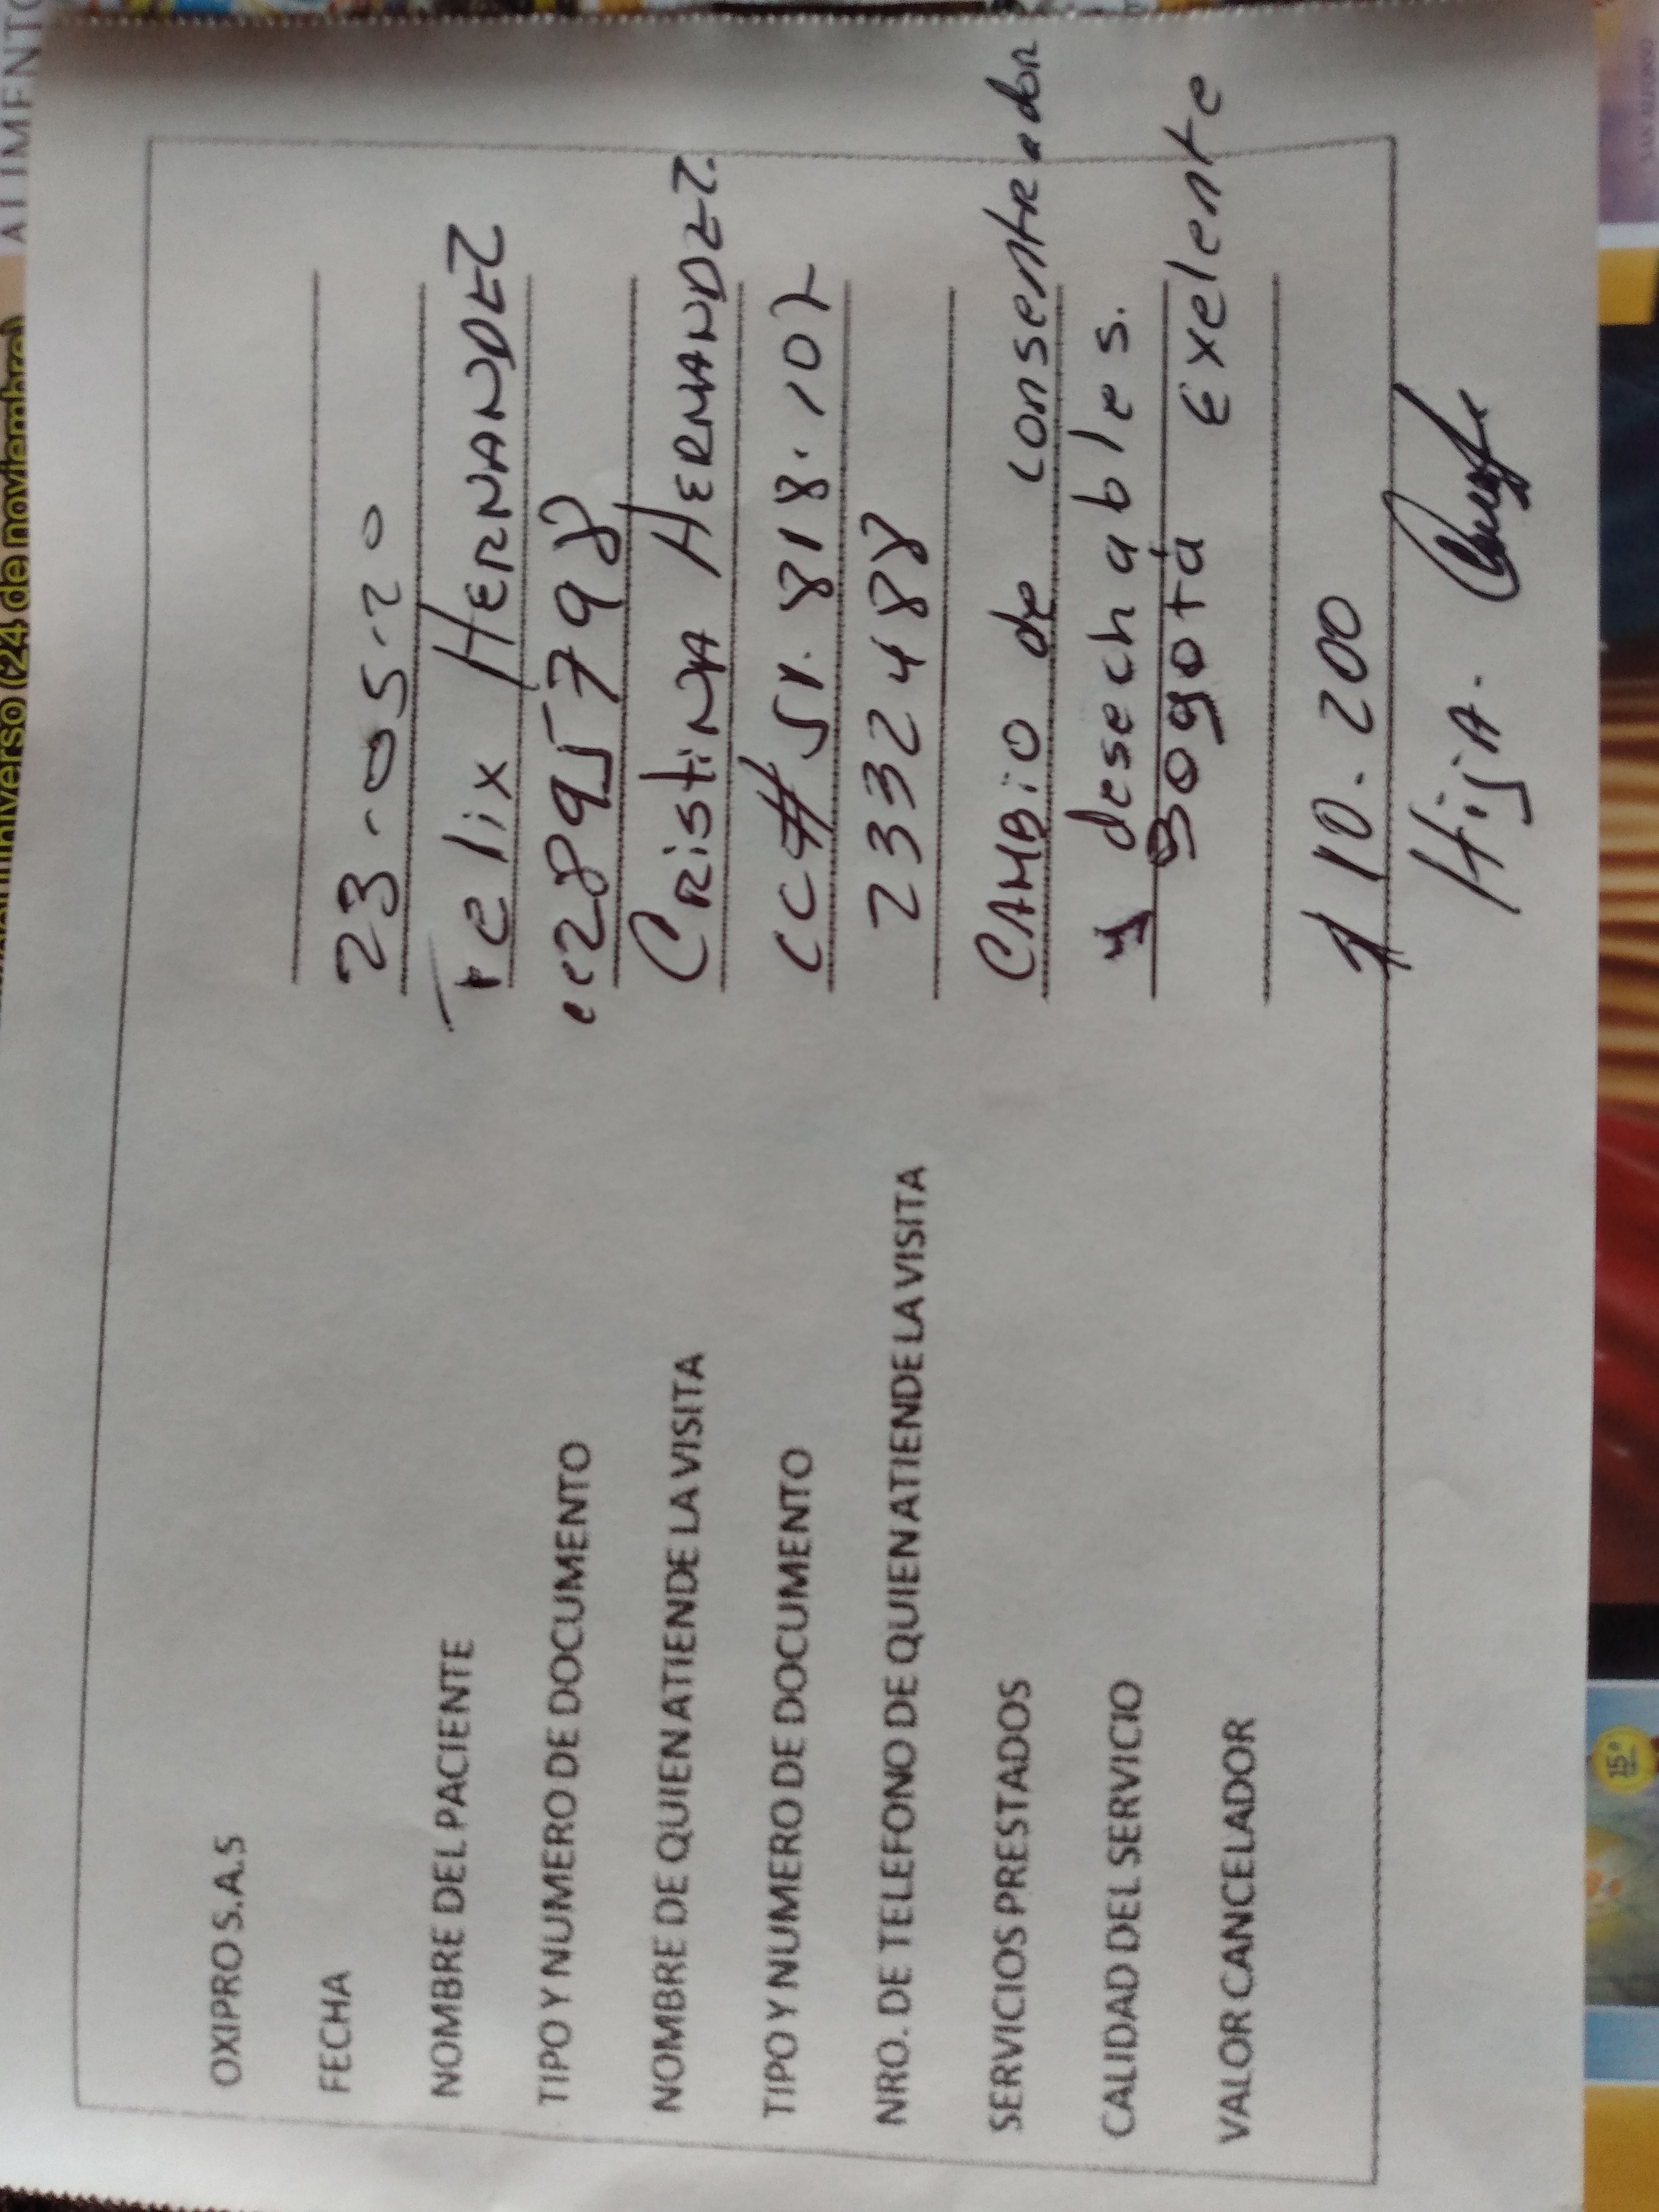 OXIPRO S.A.S
FECHA 23-05-20
NOMBRE DEL PACIENTE Felix HERNANDEZ
TIPO Y NUMERO DE DOCUMENTO cc2895798
NOMBRE DE QUIEN ATIENDE LA VISITA CRistiNA HERNANDEZ.
TIPO Y NUMERO DE DOCUMENTO CC# 51.818.107
NRO. DE TELEFONO DE QUIEN ATIENDE LA VISITA 2332488
SERVICIOS PRESTADOS CAMBiO de consentrador
y desechables.
CALIDAD DEL SERVICIO Bogotá Exelente
VALOR CANCELADOR 10.200
HijA.
ALIMENTO
universo (24 de noviembre)
15°